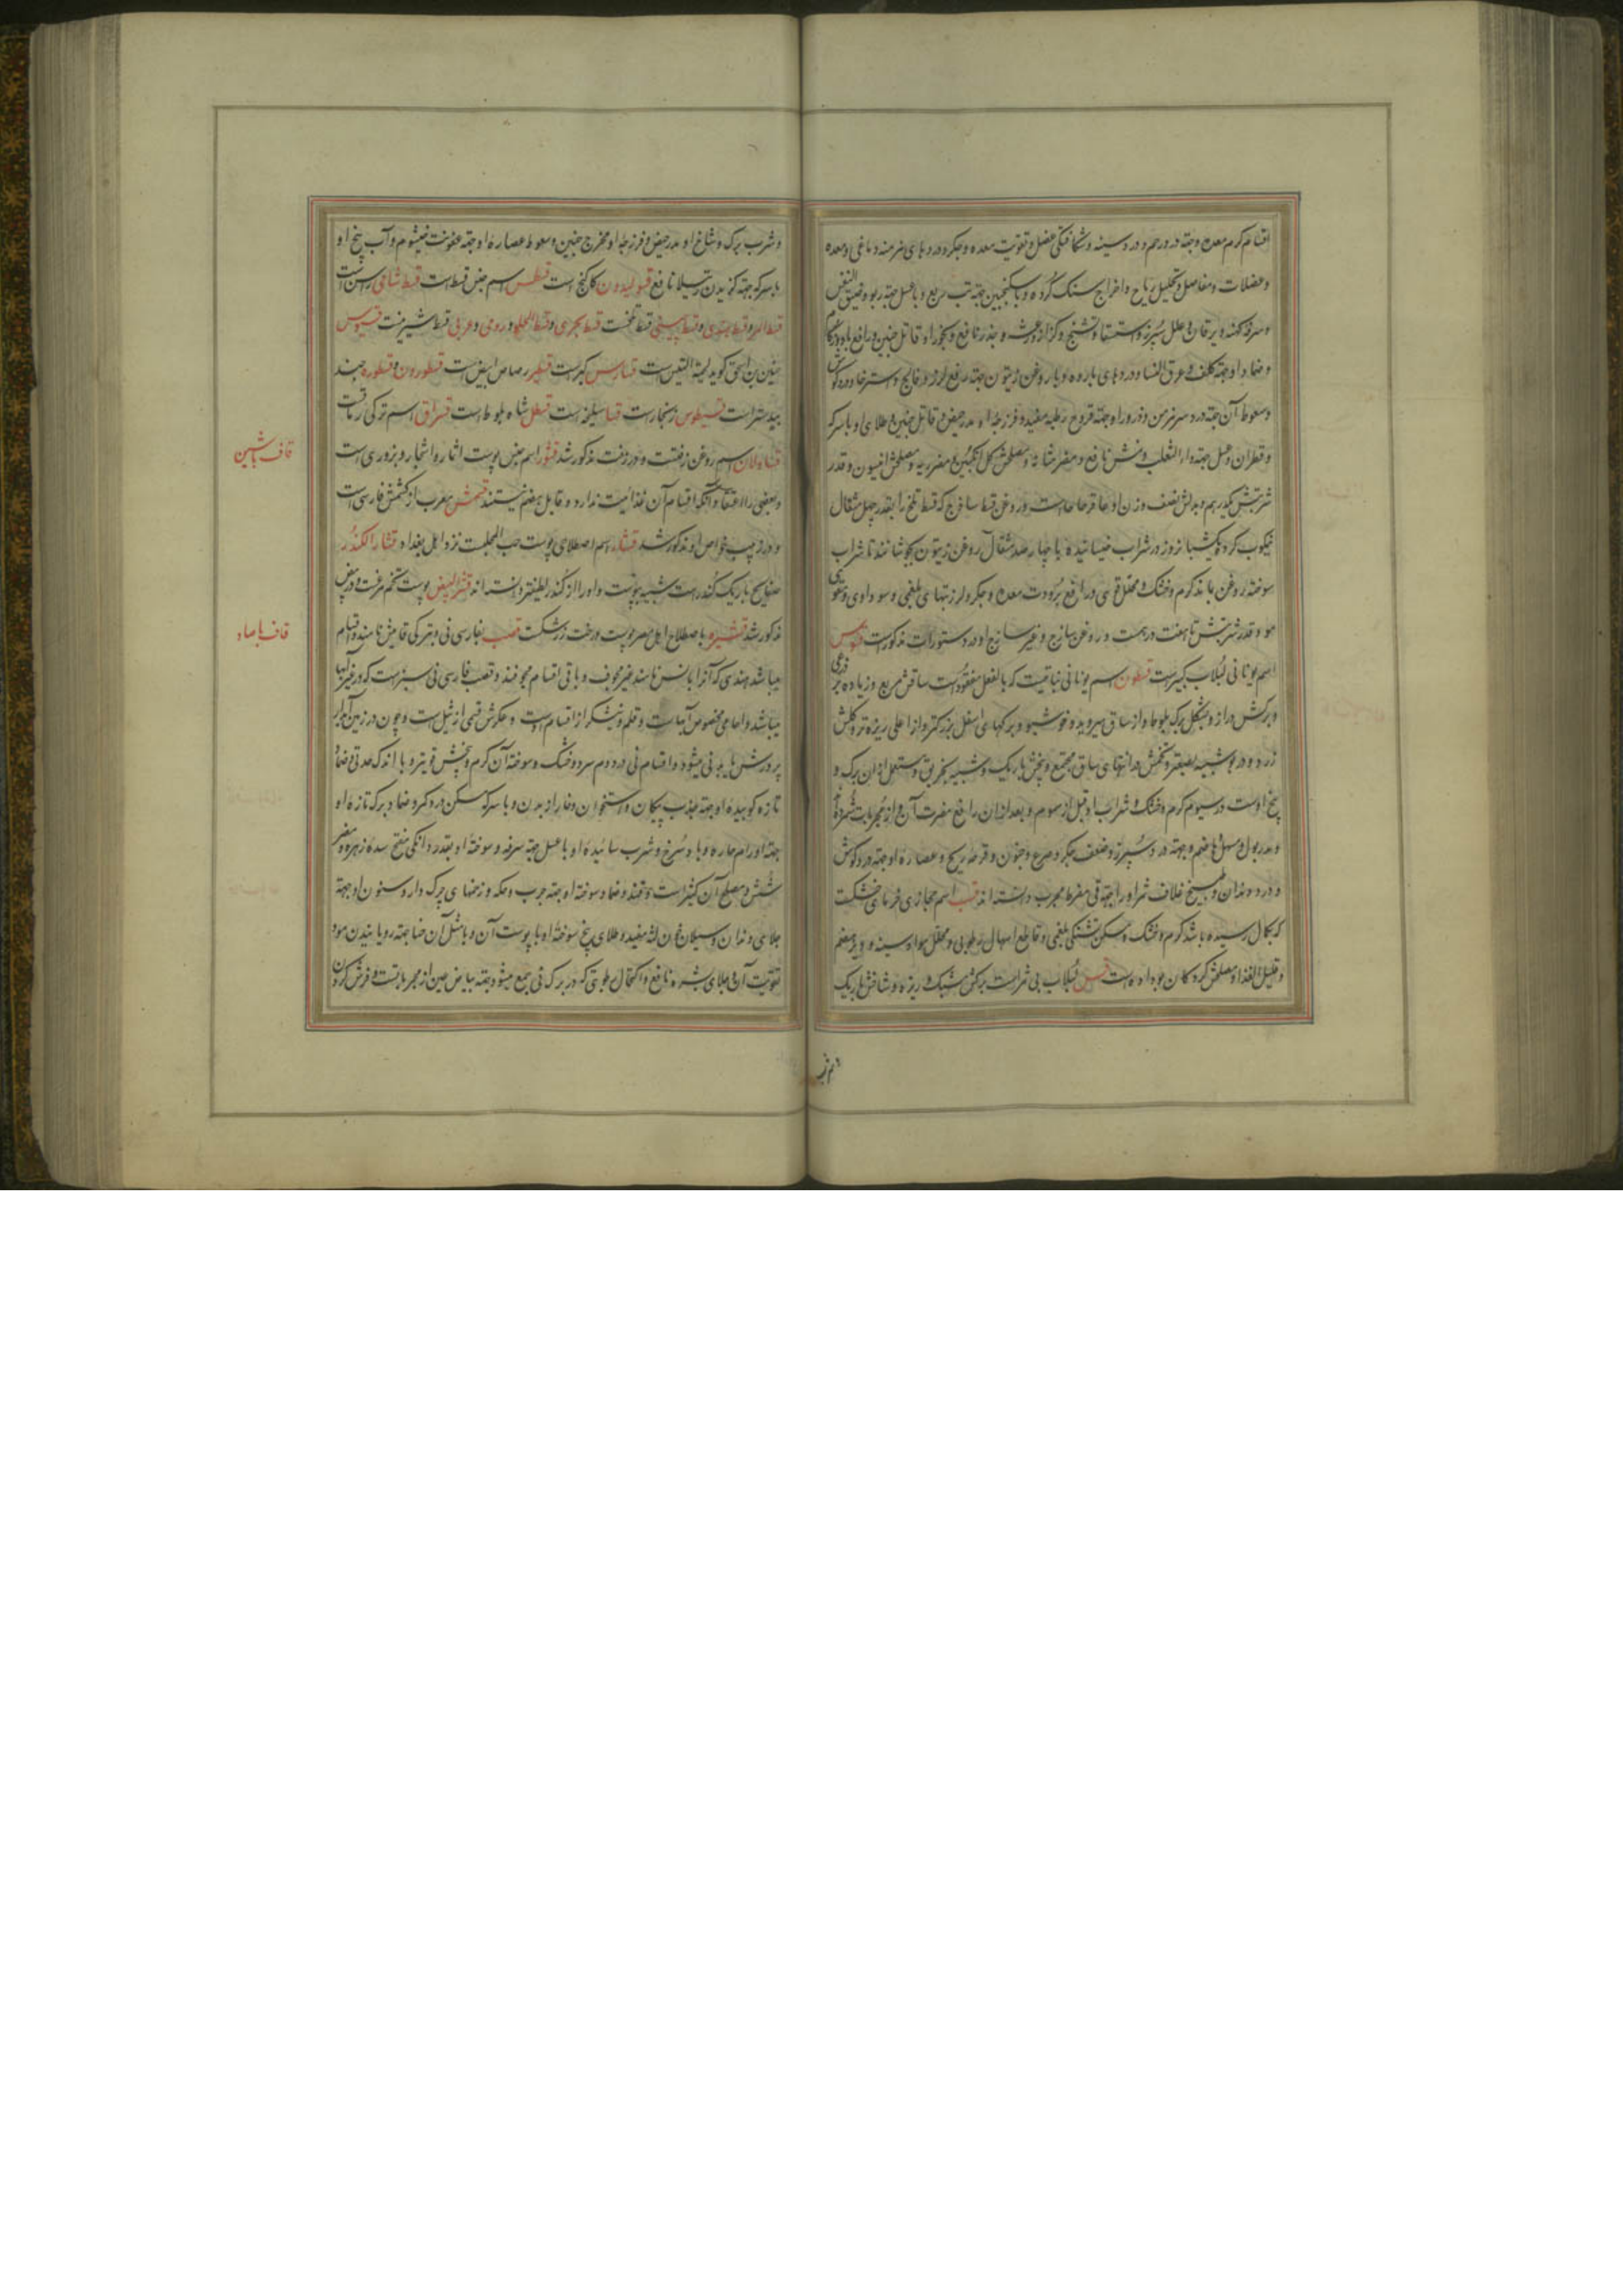 اقسام گرم معده وجهة درد رحم و درد سینه و شکافتگی عضل و تقویت معده و جگر و دردهای مزمنه دماغی و معده
و عضلات و مفاصل و تحلیل ریاح و اخراج سنگ گرده و با سکنجبین جهة تب ربع و با عسل جهة ربو و ضیق النفس
و سرفه کهنه و یرقان و علل سپرز و استسقا و تشنج و کزاز و رعشه و خدر نافع و بخور او قاتل جنین و رافع وبا و زکام
و ضماد او جهة کلف و عرق النسا و دردهای بارده و با روغن زیتون جهة رفع لرز و فالج و استرخا و درد گوش
و سعوط آن جهة درد سر مزمن و ذرور او جهة قروح رطبه مفید و فرزجه او مدر حیض و قاتل جنین و طلای او با سرکه
و قطران و عسل جهة داء الثعلب و نمش نافع و مضر مثانه و مصلحش گل انگبین و مضر ریه و مصلحش انیسون و قدر
شربتش یکدرهم و بدلش نصف وزن او عاقرقرحاست و روغن قسط ساذج که قسط تلخ را بقدر چهل مثقال
نیکوب کرده یکشبانروز در شراب خیسانیده با چهارصد مثقال روغن زیتون بجوشانند تا شراب
سوخته روغن بماند گرم و خشک و محلل قوی و رافع برودت معده و جگر و لرز تبهای بلغمی و سوداوی و مقوی
مو و قدر شربتش تا هفت درهمست و روغن ساذج و غیر ساذج او در دستورات مذکورست قسوس
اسم یونانی لبلاب کبیرست قسطون اسم یونانی نباتیست که بالفعل مفقودست ساقش مربع و زیاده بر ذرعی
و برکش دراز و بشکل برک بلوط و از ساق میروید و خوشبو و برکهای اسفل بزرکتر و از اعلی ریزه تر و کلش
زرد و در بو شبیه بصعتر و تخمش در انتهای ساق مجتمع و بیخش باریک و شبیه بخربق و مستعمل ازان برک و
بیخ اوست در سیوم گرم و خشک و شراب او قبل از سموم و بعد ازان رافع مضرت آن و از مجربات شمرده
و مدر بول و مسهل و هاضم و جهة درد سپرز و ضعف جگر و صرع و جنون و قرحه ریح و عصاره او جهة درد گوش
و درد دندان و مسیح غلاف ثمر او را جهة قی مفرط مجرب دانسته اند قسب اسم حجازی خرمای خشکست
که بکمال رسیده باشد گرم و خشک و مسکن تشنگی بلغمی و قاطع اسهال رطوبی و محلل مواد سینه و دیر هضم
و قلیل الغذا و مصلحش گردکان بو داده است قسس لبلاب بی ثمر است برکش مشبک و ریزه و شاخش باریک
و شرب
و شرب برک و شاخ او مدر حیض و فرزجه او مخرج جنین و سعوط عصاره او جهة عفونت خیشوم و آب بیخ او
با سرکه جهة گزیدن رتیلا نافع قسولیدون کاکنج است قسطس اسم جنس قسط است قسط شامی راسن است
قسط المر و قسط هندی و قسط چینی قسط تلخست قسط بحری و قسط الحلو و رومی و عربی قسط شیرینست قسیوس
حنین بن اسحق گوید لحیة التیس است قسارس کبرست قسطیر رصاص ابیض است قسطورون و قسطوره جند
بیدستر است قسیطوس زنجارست قسا سلیخه است قسطل شاه بلوط است قسراق اسم ترکی رماقست
قساولان اسم روغن زفتست و در زفت مذکور شد قشور اسم جنس پوست اثمار و اشجار و بزوری است
و بعضی را اعتقاد آنکه اقسام آن غذائیت ندارد و قابل هضم نیستند قشمش معرب از کشمش فارسی است
و در زبیب خواص او مذکور شد قشار اسم اصطلاحی پوست حب المحلبست نزد اهل بغداد قشار الکندر
صفایح باریک کندر است شبیه بپوست و او را از کندر لطیفتر دانسته اند قشر البیض پوست تخم مرغست و در بیض
مذکور شد قشیره باصطلاح اهل مصر پوست درخت زرشکست قصب بفارسی نی و بترکی قامیش نامند و اقسام
میباشد هندی که آنرا بانس نامند غیر مجوف و باقی اقسام مجوفند و قصب فارسی نی سبزست که در غیر آبها
میباشد و اجامی مخصوص آبهاست و قلم و نیشکر از اقسام اوست و عکرش قسمی از ثیل است و چون در زمین آبدار
پرورش یابد نی میشود و اقسام نی در دوم سرد و خشک و سوخته آن گرم و بیخش قویتر و با اندک حدتی و ضماد
تازه کوبیده او جهة جذب پیکان و استخوان و خار از بدن و با سرکه مسکن درد کمر و ضماد برک تازه او
جهة اورام حاره و باد سرخ و شرب سائیده او با عسل جهة سرفه و سوخته او بقدر دانکی مفتح سده زهره و مضر
شش و مصلح آن کثیراست و قند و ضماد سوخته او جهة جرب و حکه و زخمهای چرک دار و سنون او جهة
جلای دندان و سیلان خون لثه مفید و طلای بیخ سوخته او با پوست آن و با مثل آن حنا جهة رویانیدن مو و
تقویت آن و جلای بشره نافع و اکتحال رطوبتی که در برک نی جمع میشود جهة بیاض عین از مجرباتست و فرش کردن
قاف با شین
قاف با صاد